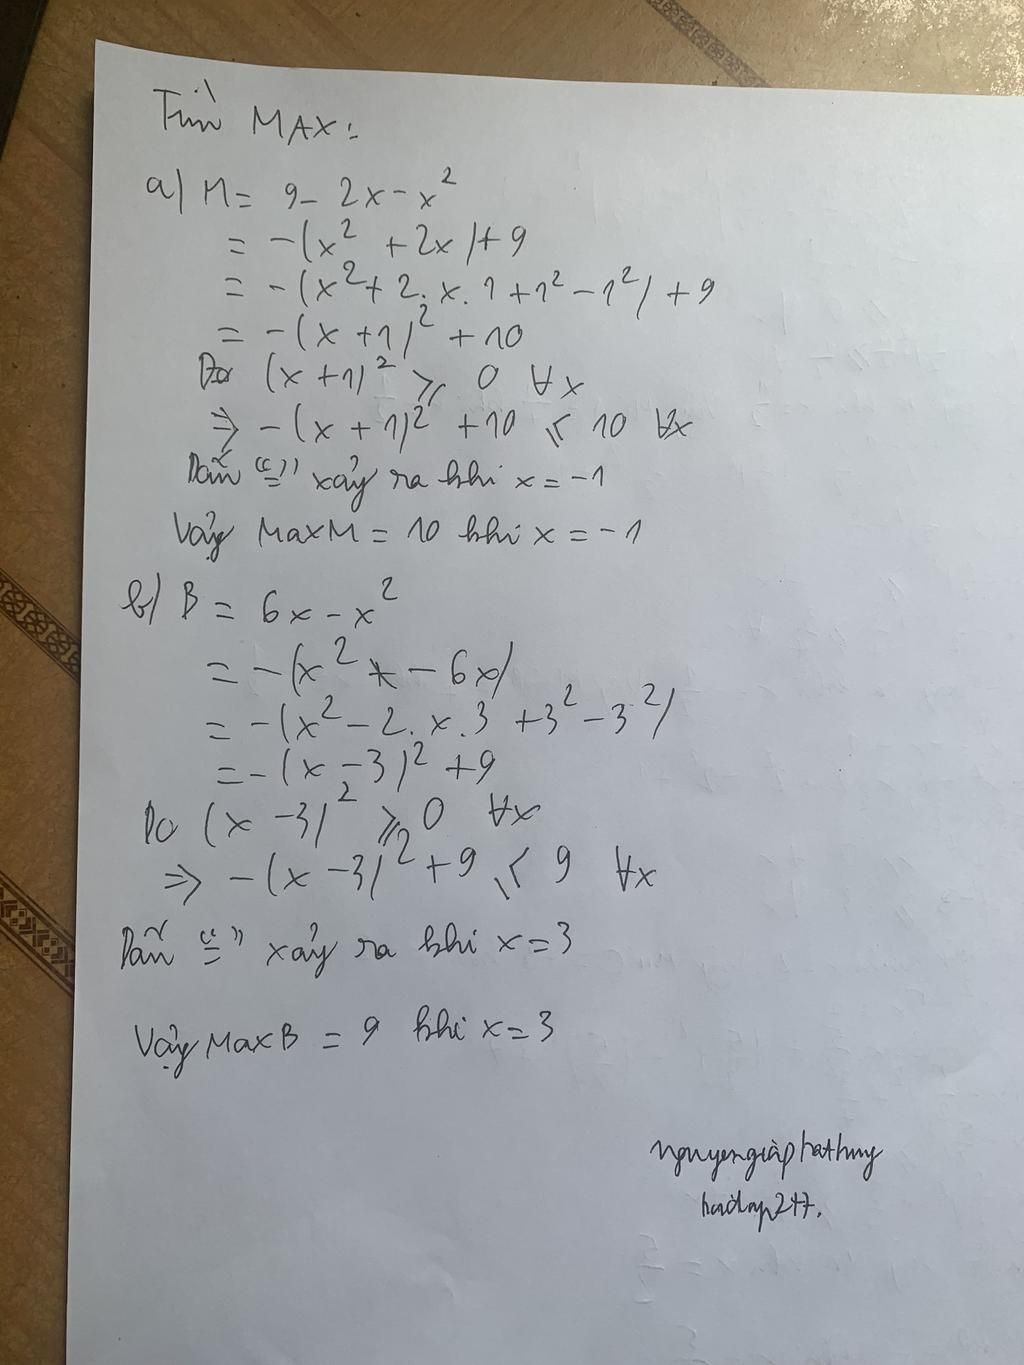 Tìm MAX:
a) M = 9 - 2x - x²
= -(x² + 2x) + 9
= -(x² + 2. x. 1 + 1² - 1²) + 9
= -(x + 1)² + 10
Do (x + 1)² ⩾ 0 ∀x
⇒ -(x + 1)² + 10 ⩽ 10 ∀x
Dấu "=" xảy ra khi x = -1
Vậy MaxM = 10 khi x = -1
b) B = 6x - x²
= -(x² - 6x)
= -(x² - 2. x. 3 + 3² - 3²)
= -(x - 3)² + 9
Do (x - 3)² ⩾ 0 ∀x
⇒ -(x - 3)² + 9 ⩽ 9 ∀x
Dấu "=" xảy ra khi x = 3
Vậy MaxB = 9 khi x = 3
hoidap247.